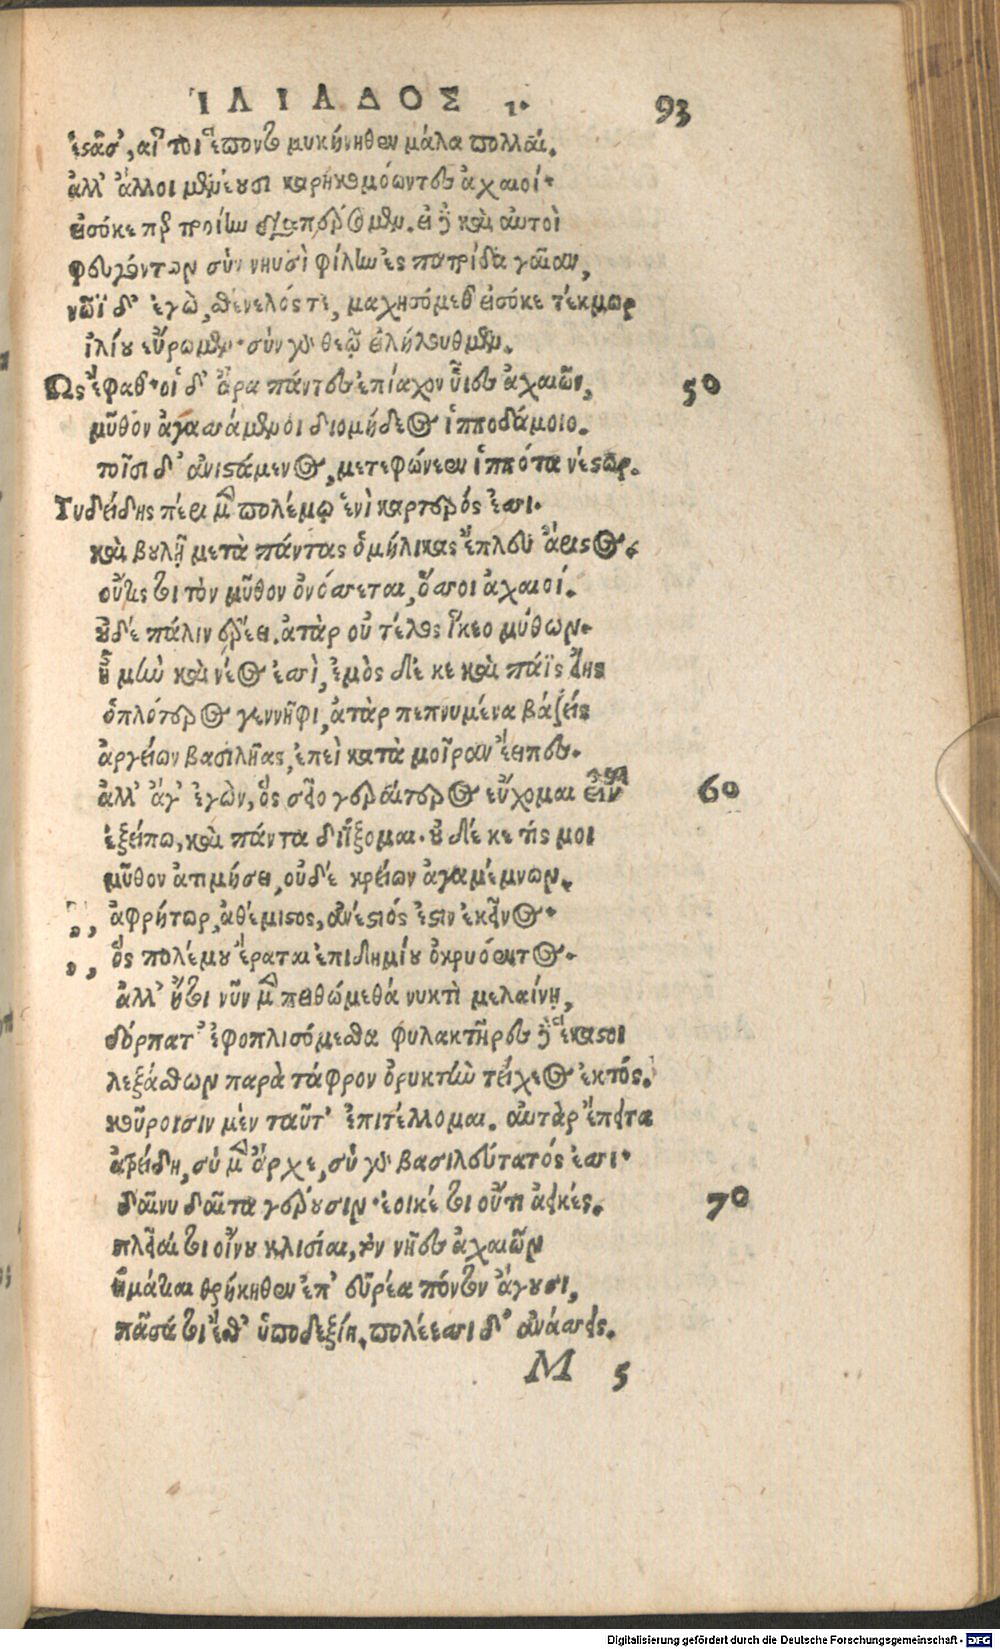 ἸΛΙΑΔΟΣ ι. 93
ἑςᾶσ', αἵ τοι ἕποντο μυκήνηθεν μάλα πολλαί.
ἀλλ' ἄλλοι μενέουσι καρηκομόωντες ἀχαιοί·
εἰσόκε περ τροίην διαπέρσομεν. εἰ δὲ καὶ αὐτοὶ
φευγόντων σὺν νηυσὶ φίλην ἐς πατρίδα γαῖαν,
νῶϊ δ' ἐγὼ, σθένελός τε, μαχησόμεθ' εἰσόκε τέκμωρ
ἰλίου εὕρωμεν· σὺν γὰρ θεῷ εἰλήλουθμεν.
Ως ἔφαθ'· οἱ δ' ἄρα πάντες ἐπίαχον υἷες ἀχαιῶν, 50
μῦθον ἀγασσάμενοι διομήδεος ἱπποδάμοιο.
τοῖσι δ' ἀνιςάμενος, μετεφώνεεν ἱππότα νέςωρ.
Τυδείδη πέρι μὲν πολέμῳ ἐνὶ καρτερός ἐσσι·
καὶ βουλῇ μετὰ πάντας ὁμήλικας ἔπλευ ἄριςος.
οὔτις τοι τὸν μῦθον ὀνόσσεται, ὅσσοι ἀχαιοί.
οὐδέ πάλιν ἐρέει. ἀτὰρ οὐ τέλος ἵκεο μύθων.
ἦ μὴν καὶ νέος ἐσσὶ, ἐμὸς δέ κε καὶ πάϊς εἴης
ὁπλότερος γεννῆφι, ἀτὰρ πεπνυμένα βάζεις
ἀργείων βασιλῆας, ἐπεὶ κατὰ μοῖραν ἔειπες.
ἀλλ' ἄγ' ἐγὼν, ὃς σεῖο γεραίτερος εὔχομαι εἶν 60
ἐξείπω, καὶ πάντα διΐξομαι. οὐ δέ κε τίς μοι
μῦθον ἀτιμήσει, οὐδέ κρείων ἀγαμέμνων.
„ ἀφρήτωρ, ἀθέμιςος, ἀνέςιός ἐςιν ἐκεῖνος·
„ ὃς πολέμου ἔραται ἐπιδημίου ὀκρυόεντος.
ἀλλ' ἤτοι νῦν μὲν πειθώμεθα νυκτὶ μελαίνῃ,
δόρπατ' ἐφοπλισόμεσθα φυλακτῆρες δὲ ἕκαςοι
λεξάσθων παρὰ τάφρον ὀρυκτὴν τείχεος ἐκτός.
κούροισιν μὲν ταῦτ' ἐπιτέλλομαι. αὐτὰρ ἔπειτα
ἀτρείδη, σύ μὲν ἄρχε, σὺ γὰρ βασιλεύτατός ἐσσι·
δαίνυ δαῖτα γέρουσιν· ἔοικέ τοι οὔτι ἀεικές. 70
πλεῖαί τοι οἴνου κλισίαι, τὸν νῆες ἀχαιῶν
ἠμάτιαι θρήκηθεν ἐπ' εὐρέα πόντον ἄγουσι,
πᾶσά τοι ἔσθ' ὑποδεξίη, πολέεσσι δ' ἀνάσσεις.
M 5
Digitalisierung gefördert durch die Deutsche Forschungsgemeinschaft - DFG